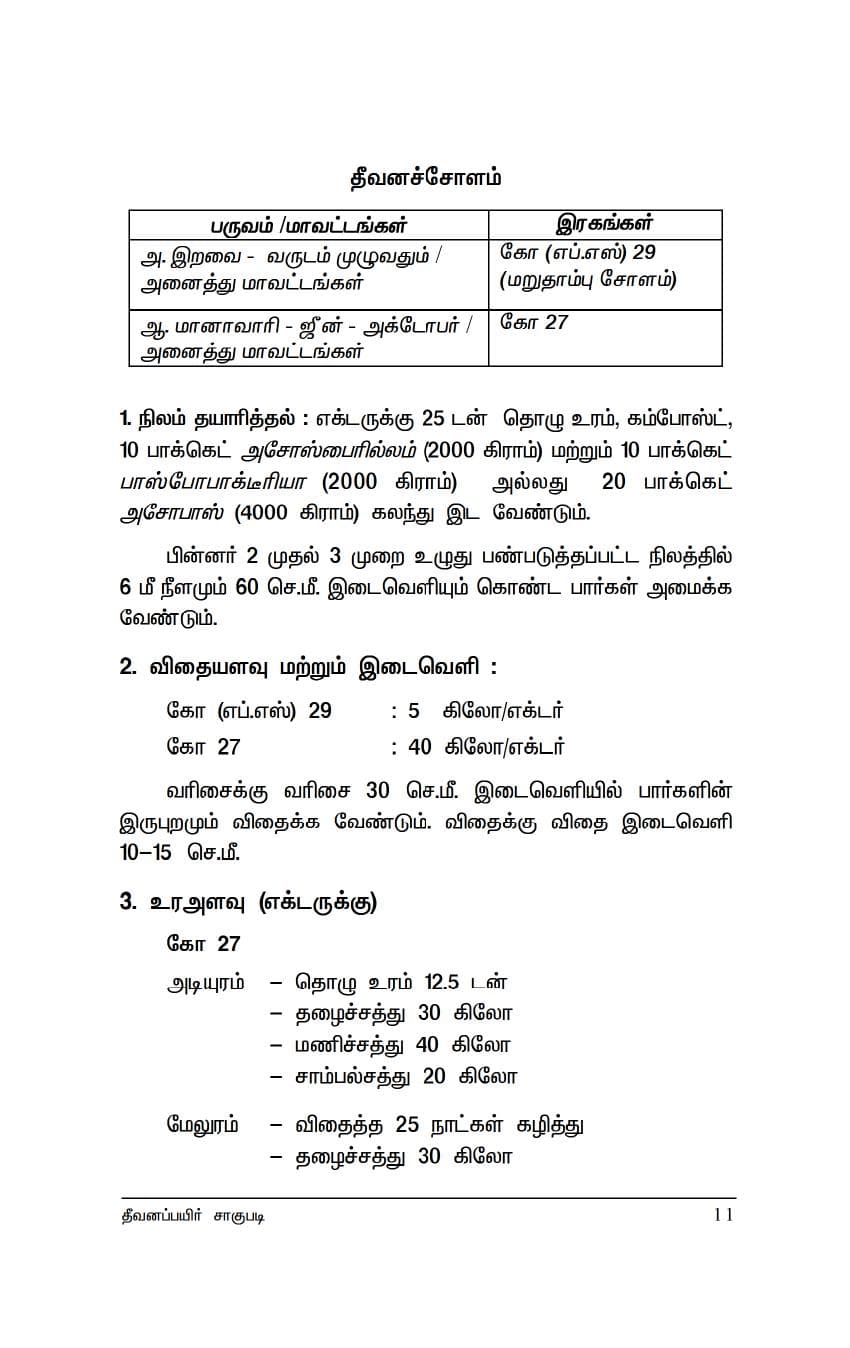 தீவனச்சோளம்
பருவம் /மாவட்டங்கள் இரகங்கள்
அ. இறவை - வருடம் முழுவதும் / கோ (எப்.எஸ்) 29
அனைத்து மாவட்டங்கள் (மறுதாம்பு சோளம்)
ஆ. மானாவாரி - ஜீன் - அக்டோபர் / கோ 27
அனைத்து மாவட்டங்கள்
1. நிலம் தயாரித்தல் : எக்டருக்கு 25 டன் தொழு உரம், கம்போஸ்ட்,
10 பாக்கெட் அசோஸ்பைரில்லம் (2000 கிராம்) மற்றும் 10 பாக்கெட்
பாஸ்போபாக்டீரியா (2000 கிராம்) அல்லது 20 பாக்கெட்
அசோபாஸ் (4000 கிராம்) கலந்து இட வேண்டும்.
பின்னர் 2 முதல் 3 முறை உழுது பண்படுத்தப்பட்ட நிலத்தில்
6 மீ நீளமும் 60 செ.மீ. இடைவெளியும் கொண்ட பார்கள் அமைக்க
வேண்டும்.
2. விதையளவு மற்றும் இடைவெளி :
கோ (எப்.எஸ்) 29 : 5 கிலோ/எக்டர்
கோ 27 : 40 கிலோ/எக்டர்
வரிசைக்கு வரிசை 30 செ.மீ. இடைவெளியில் பார்களின்
இருபுறமும் விதைக்க வேண்டும். விதைக்கு விதை இடைவெளி
10–15 செ.மீ.
3. உரஅளவு (எக்டருக்கு)
கோ 27
அடியுரம் – தொழு உரம் 12.5 டன்
– தழைச்சத்து 30 கிலோ
– மணிச்சத்து 40 கிலோ
– சாம்பல்சத்து 20 கிலோ
மேலுரம் – விதைத்த 25 நாட்கள் கழித்து
– தழைச்சத்து 30 கிலோ
தீவனப்பயிர் சாகுபடி 11